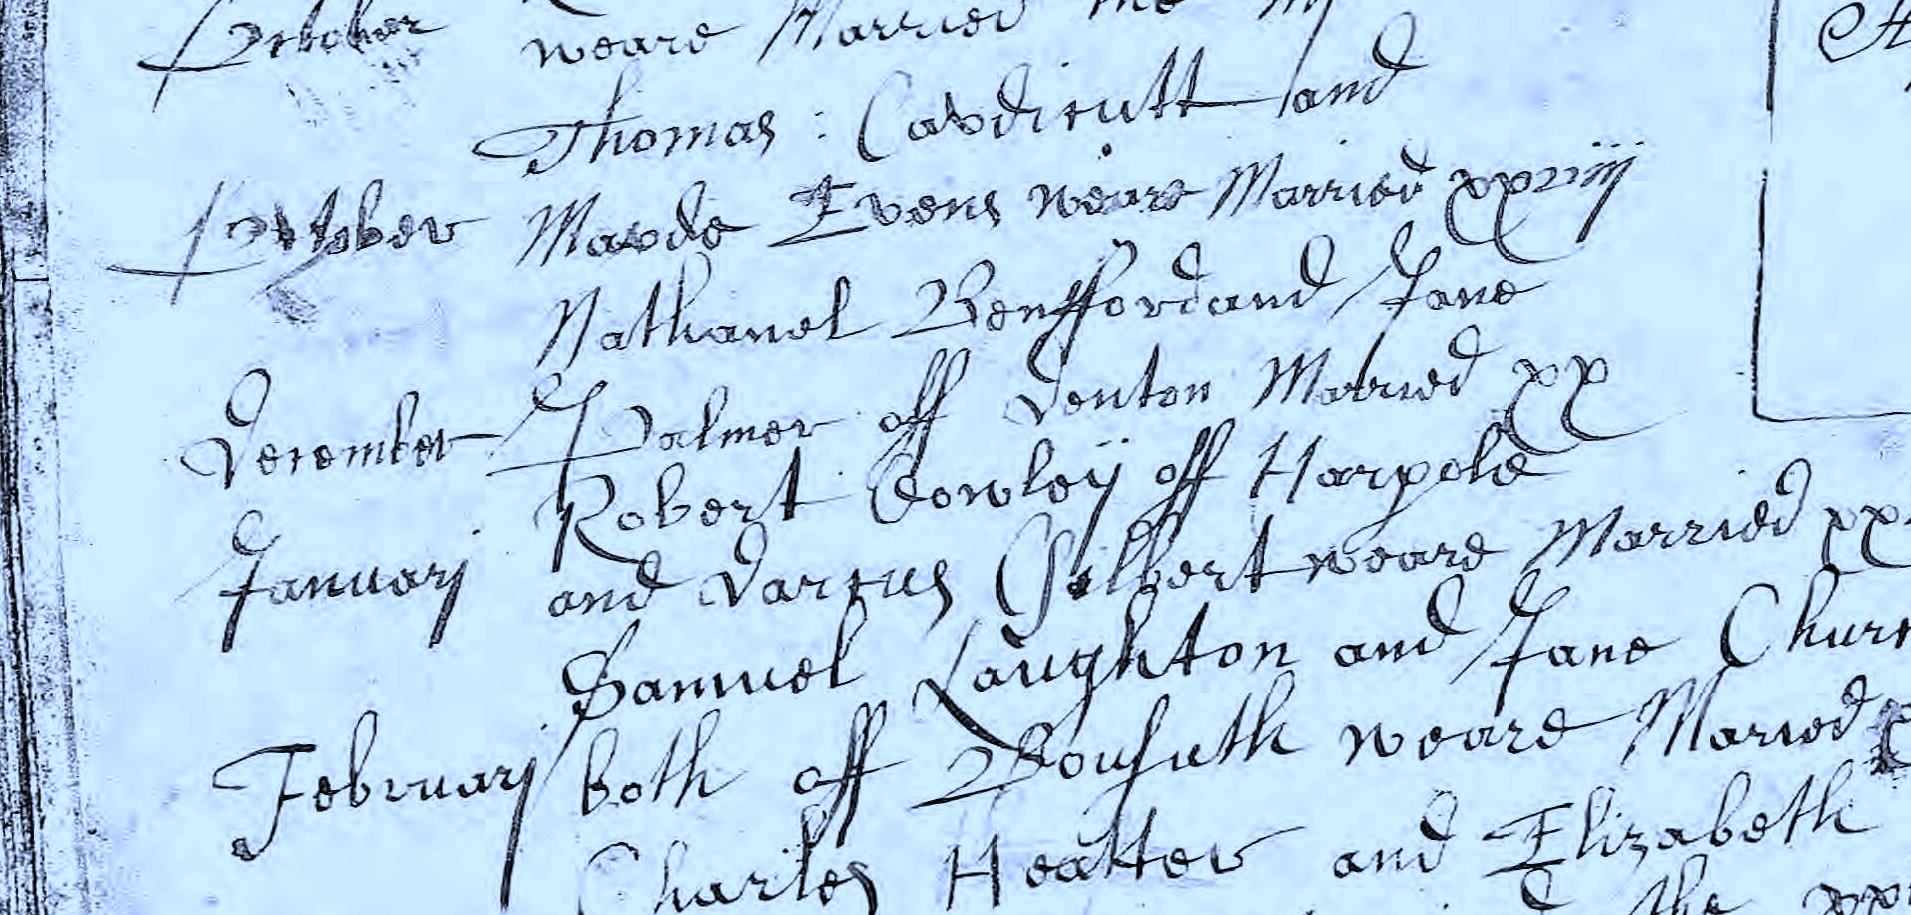 October weare Married the
Thomas : Cavdicutt and
October Mavde Evens weare Married xxviiij
Nathanel Benfford and Jane
December Palmer off Denton Married xx
Robert Cowley off Harpole
Januarj and Darcus Gilbert weare Married xx
Samuel Laughton and Jane Church
Februarj both off weare Maried
Charles Heatter and Elizabeth
the xx